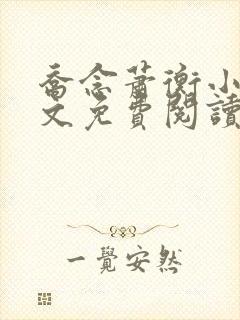 喬念蕭衡小
文免費閱讀
一覺安然